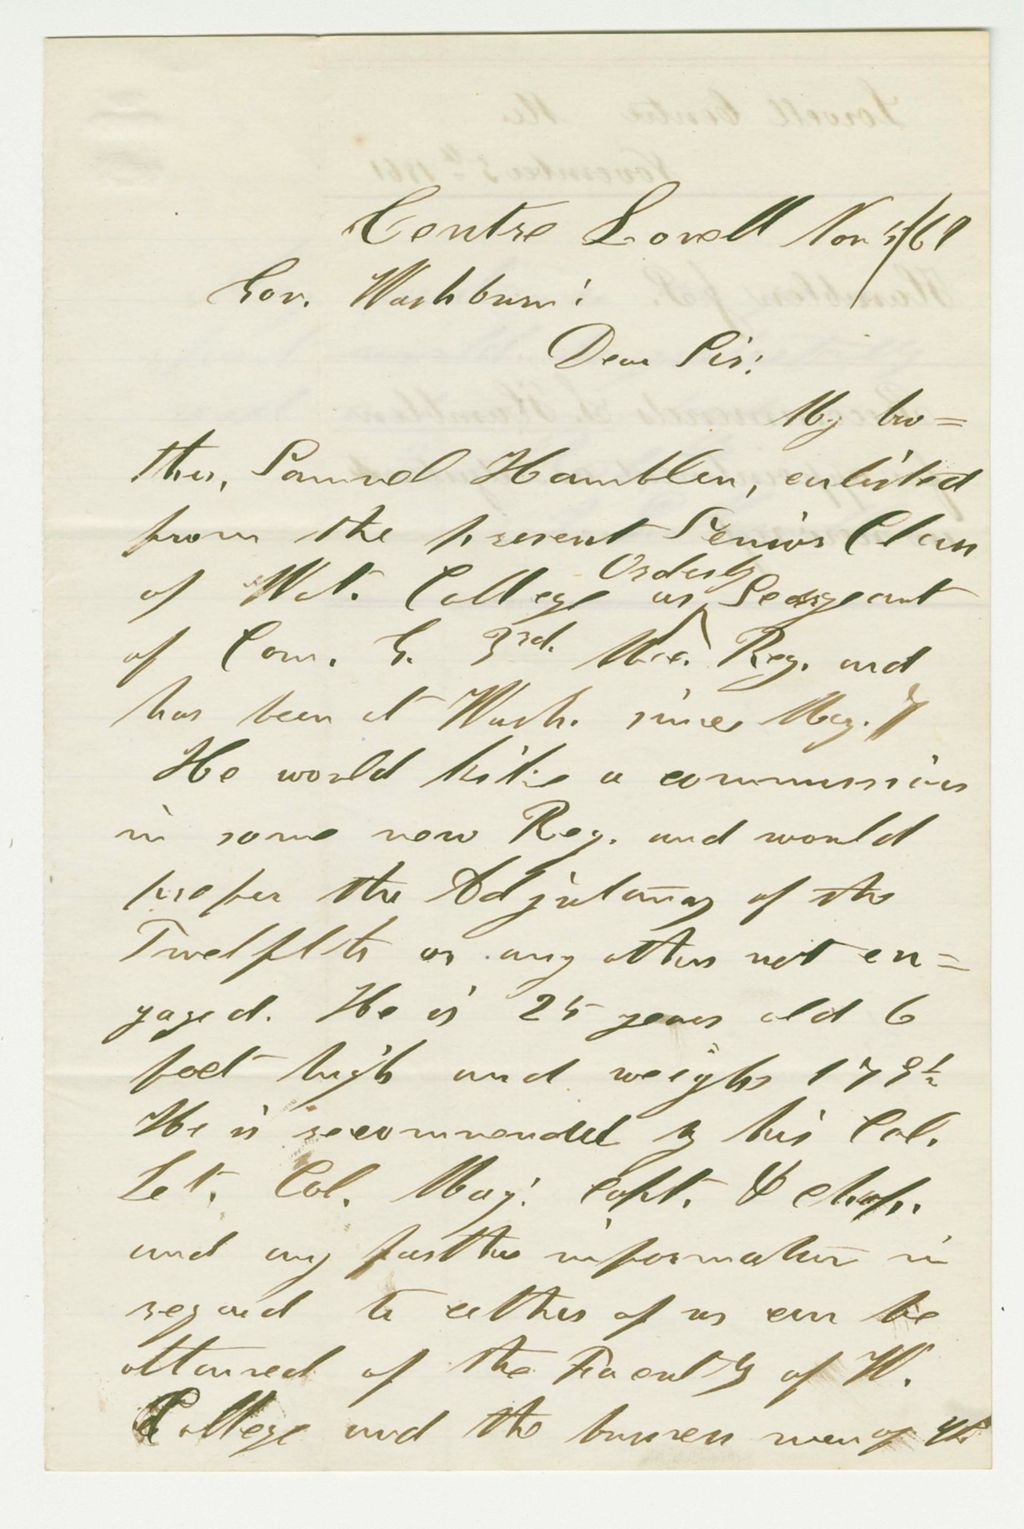 Centre Lovell Nov 5/61
Gov. Washburn:
Dear Sir:
My bro=
ther, Samuel Hamblen, enlisted
from the present Senior Class
of Wat. College as Orderly Seargeant
of Com. G. 3rd. Me. Reg. and
has been at Wash. since May.
He would like a commission
in some new Reg. and would
prefer the Adjutancy of the
Twelfth or any other not en=
gaged. He is 25 years old 6
feet high and weighs 179½
He is recommended by his Col.
Let. Col. Maj. Capt. & Chap.
and any further information in
regard to either of us can be
attained of the Faculty of W.
College and the business men of